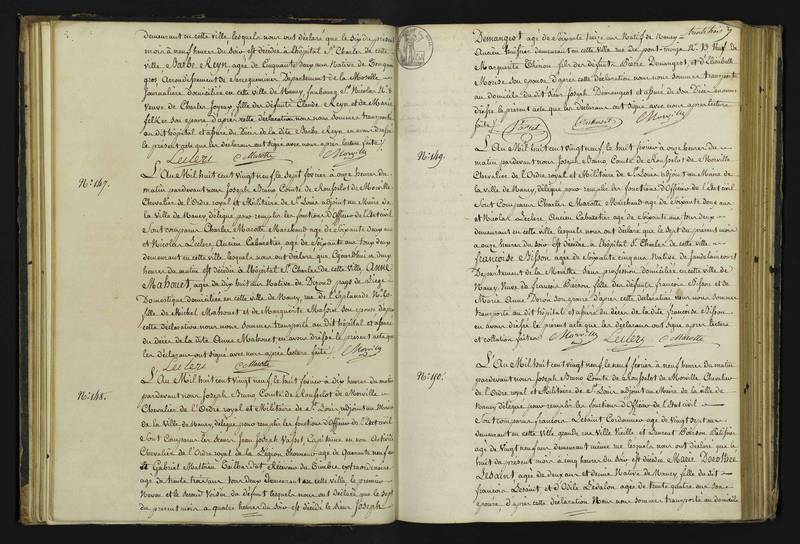 demeurant en cette ville lesquels nous ont déclaré que le six du présent
mois à neuf heures du soir est décédée à l'hôpital St Charles de cette
ville, Barbe Reyn, agée de Cinquante deux ans Native de
arrondissement de Sarreguemines Département de la Moselle
Journalière domiciliée en cette ville de Nancy, faubourg St Nicolas No
Veuve de Charles fille des défunts Claude Reyn et de Marie
son épouse d'après cette déclaration nous nous sommes transporté
au dit hôpital et assuré du décès de la dite Barbe Reyn en avons dressé
le présent acte que les déclarans ont signé avec nous après lecture faite
Leclerc Marotte Morville
No 147.
L'An Mil huit cent vingt neuf le sept février à onze heures du
matin pardevant nous Joseph Bruno Comte de Rousselot de Morville
Chevalier de l'Ordre royal et Militaire de St Louis adjoint au Maire de
la Ville de Nancy, délégué pour remplir les fonctions d'Officier de l'Etat civil
Sont Comparus Charles Marotte Marchand agé de Soixante deux ans
et Nicolas Leclerc Ancien Cabaretier, agé de Soixante un ans deux
demeurant en cette ville lesquels nous ont déclaré que Cejourd'hui à deux
heures du matin est décédée à l'hôpital St Charles de cette ville, Anne
Mahouet, agée de dix huit ans Native de pays de Liège
Domestique domiciliée en cette ville de Nancy, rue de l'Esplanade No
fille de Michel Mahouet et de Marguerite son épouse d'après
cette déclaration nous nous sommes transporté au dit hôpital et assuré
du décès de la dite Anne Mahouet en avons dressé le présent acte que
les déclarans ont signé avec nous après lecture faite
Leclerc Marotte Morville
No 148.
L'An Mil huit cent vingt neuf le huit février à dix heures du matin
pardevant nous Joseph Bruno Comte de Rousselot de Morville
Chevalier de l'Ordre royal et Militaire de St Louis, adjoint au Maire
de la Ville de Nancy, délégué pour remplir les fonctions d'Officier de l'Etat civil
Sont Comparus les Sieurs Jean Joseph Capitaine en non Activité
Chevalier de l'Ordre royal de la Légion d'honneur agé de Quarante neuf ans
et Gabriel Mathieu Gaillardot Receveur du Timbre extraordinaire
agé de trente trois ans tous deux demeurant en cette ville, le premier
Neveu et le second Voisin du défunt lesquels nous ont déclaré que le sept
du présent mois à quatre heures du soir est décédé le sieur Joseph
Demangeot agé de Soixante treize ans Natif de Nancy
Ancien demeurant en cette ville rue No 13 Veuf de
Marguerite Thirion fils des défunts Demangeot, et d'
son épouse d'après cette déclaration nous nous sommes transporté
au domicile du dit Sieur Joseph Demangeot et assuré de son Décès en avons
dressé le présent acte que les déclarans ont signé avec nous après lecture
faite
Morville
No 149.
L'An Mil huit cent vingt neuf, le huit février à onze heures du
matin pardevant nous Joseph Bruno Comte de Rousselot de Morville
Chevalier de l'Ordre royal et Militaire de St Louis adjoint au Maire de
la ville de Nancy, délégué pour remplir les fonctions d'Officier de l'Etat civil
Sont Comparus Charles Marotte Marchand agé de Soixante deux ans
et Nicolas Leclerc Ancien Cabaretier agé de Soixante un ans tous deux
demeurant en cette ville lesquels nous ont déclaré que le sept du présent mois
à onze heures du soir est décédée à l'hôpital St Charles de cette ville
françoise Bisson agée de Soixante cinq ans Native de
Département de la Meurthe Sans profession Domiciliée en cette ville de
Nancy, Veuve de francois fille des défunts francois Bisson et de
Marie son épouse d'après cette déclaration nous nous sommes
transporté au dit hôpital et assuré du décès de la dite francoise Bisson
en avons dressé le présent acte que les déclarans ont signé après lecture
et collation faites Morville Leclerc Marotte
No 150.
L'An Mil huit cent vingt neuf le neuf février à neuf heures du matin
pardevant nous Joseph Bruno Comte de Rousselot de Morville, Chevalier
de l'Ordre royal et Militaire de St Louis, adjoint au Maire de la ville de
Nancy délégué pour remplir les fonctions d'Officier de l'Etat civil
Sont Comparus francois Lesaint Cordonnier agé de Vingt sept ans
demeurant en cette Ville grande rue Ville Vieille et Laurent Poirson
agé de Vingt neuf ans demeurant même rue lesquels nous ont déclaré que le
huit du présent mois à cinq heures du soir est décédée Marie Dorothée
Lesaint agée de deux ans et demie Native de Nancy, fille du dit
francois Lesaint et d'Odile agée de trente quatre ans son
épouse, d'après cette déclaration Nous nous sommes transporté au domicile